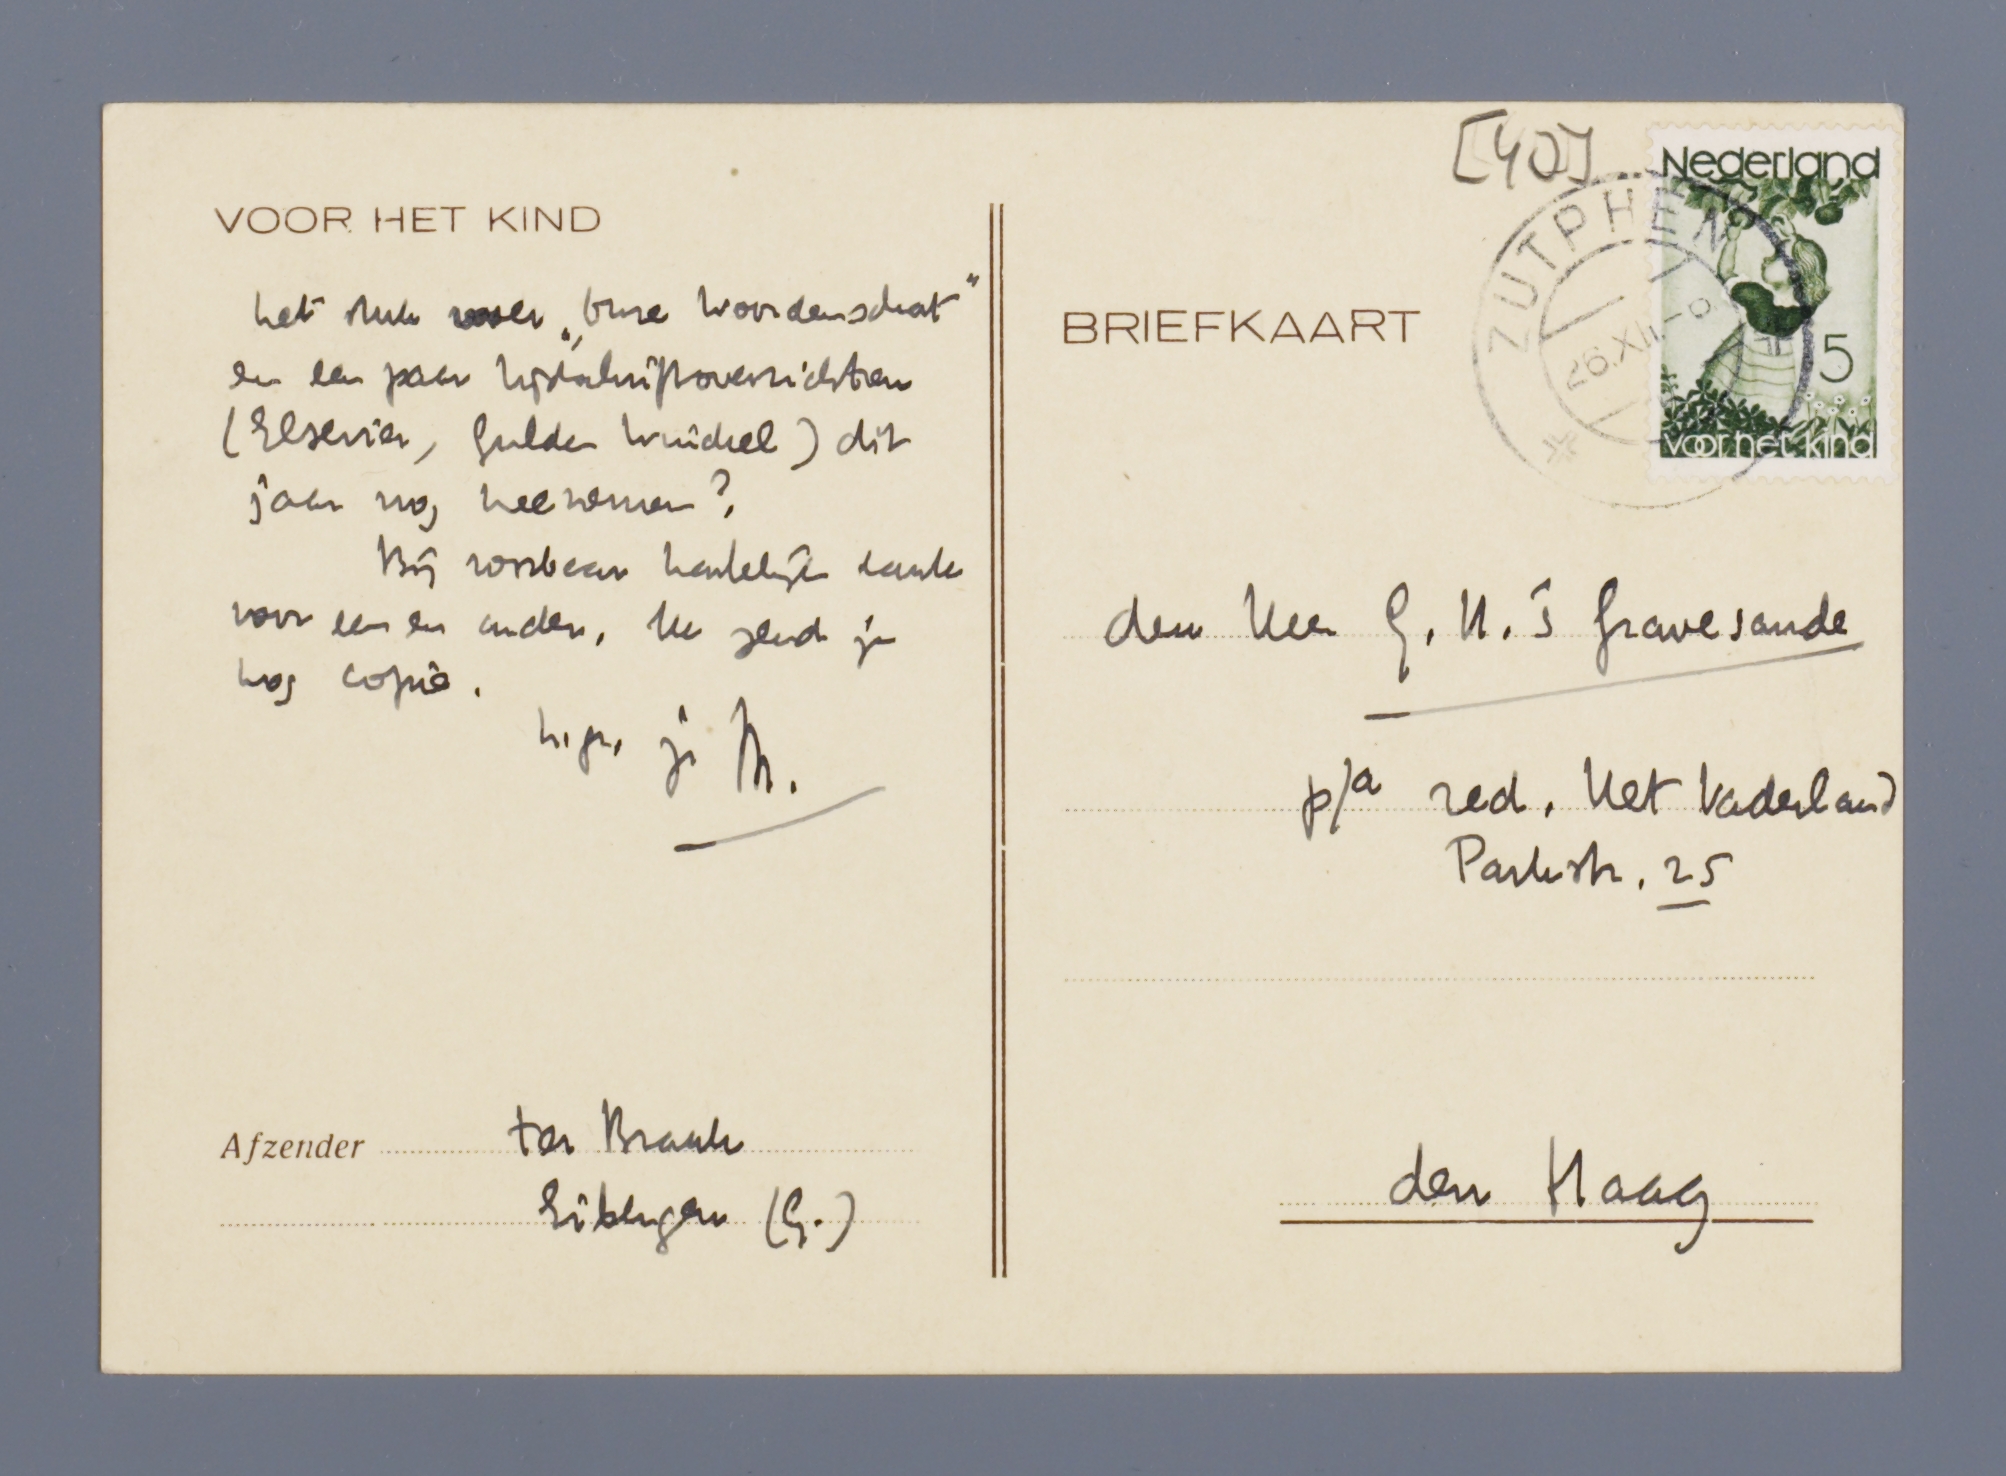 VOOR HET KIND
het stuk over „Onze Woordenschat"
en een paar tijdschriftoverzichten
(Elsevier, Gulden Winckel) dit
jaar nog meenemen?
Bij voorbaat hartelijk dank
voor een en ander. Ik zend je
nog copie.
h.gr. je M.
Afzender ter Braak
Eibergen (G.)
[40]
Nederland
5
voor het kind
ZUTPHEN
26.XII
BRIEFKAART
den Heer G.H. 's Gravesande
p/a red. Het Vaderland
Parkstr. 25
den Haag